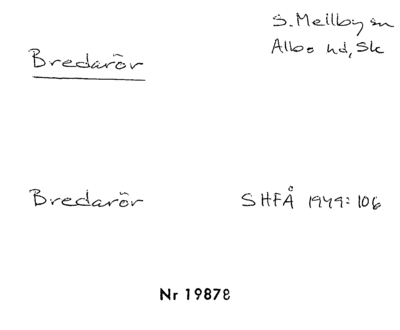 Bredarör
S. Mellby sn
Albo hd, Sk
Bredarör
SHFÅ 1949: 106
Nr 19878